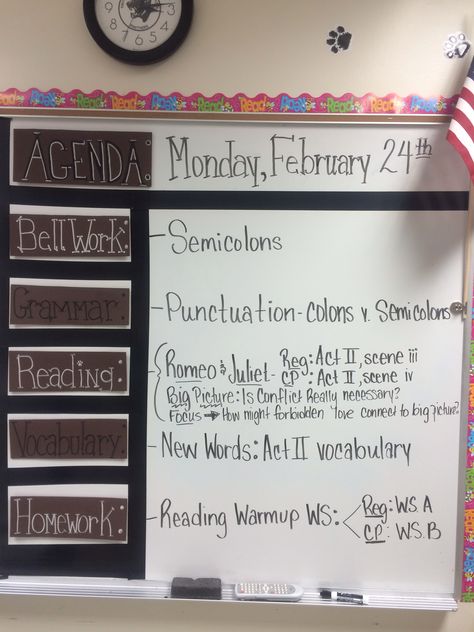 AGENDA: Monday, February 24th
Bell Work: - Semicolons
Grammar: - Punctuation - colons v. Semicolons
Reading: Romeo & Juliet - Reg: Act II, scene iii
CP: Act II, scene iv
Big Picture: Is Conflict Really necessary?
Focus → How might forbidden love connect to big picture?
Vocabulary: - New Words: Act II vocabulary
Homework: - Reading Warmup WS: Reg: WS. A
CP: WS. B